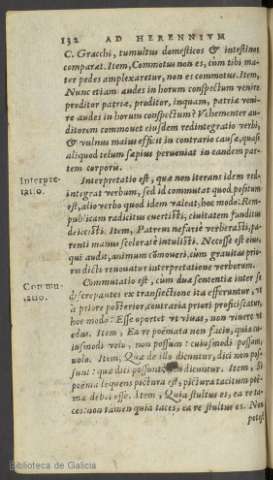 132 AD HERENNIVM
C. Gracchi, tumultus domesticos & intestinos
comparat. Item, Commotus non es, cum tibi ma-
ter pedes amplexaretur, non es commotus. Item,
Nunc etiam audes in horum conspectum venire
proditor patriæ, proditor, inquam, patriæ veni-
re audes in horum conspectum? Vehementer au-
ditorem commouet eiusdem redintegratio verbi,
& vulnus maius efficit in contrario causæ, quasi
aliquod telum sæpius perueniat in eandem par-
tem corporis.
Interpre-
tatio.
Interpretatio est, quæ non iterans idem red-
integrat verbum, sed id commutat quod positum
est, alio verbo quod idem valeat, hoc modo: Rem-
publicam radicitus euertisti, ciuitatem funditus
deiecisti. Item, Patrem nefariè verberasti, pa-
renti manus scelerate intulisti. Necesse est eius,
qui audit, animum cōmoueri, cùm grauitas prio-
ris dicti renouatur interpretatione verborum.
Commu-
tatio.
Commutatio est, cùm duæ sententiæ inter se
discrepantes ex transiectione ita efferuntur, vt
à priore posterior, contraria priori proficiscatur,
hoc modo: Esse oportet vt viuas, non viuere vt
edas. Item, Ea re poëmata non facio, quia cu-
iusmodi volo, non possum: cuiusmodi possum,
nolo. Item, Quæ de illo dicuntur, dici non pos-
sunt: quæ dici possunt, non dicuntur. Item, Si
poëma loquens pictura est, pictura tacitum poë-
ma debet esse. Item, Quia stultus es, ea re ta-
ces: non tamen quia taces, ea re stultus es. Non
potest
Biblioteca de Galicia